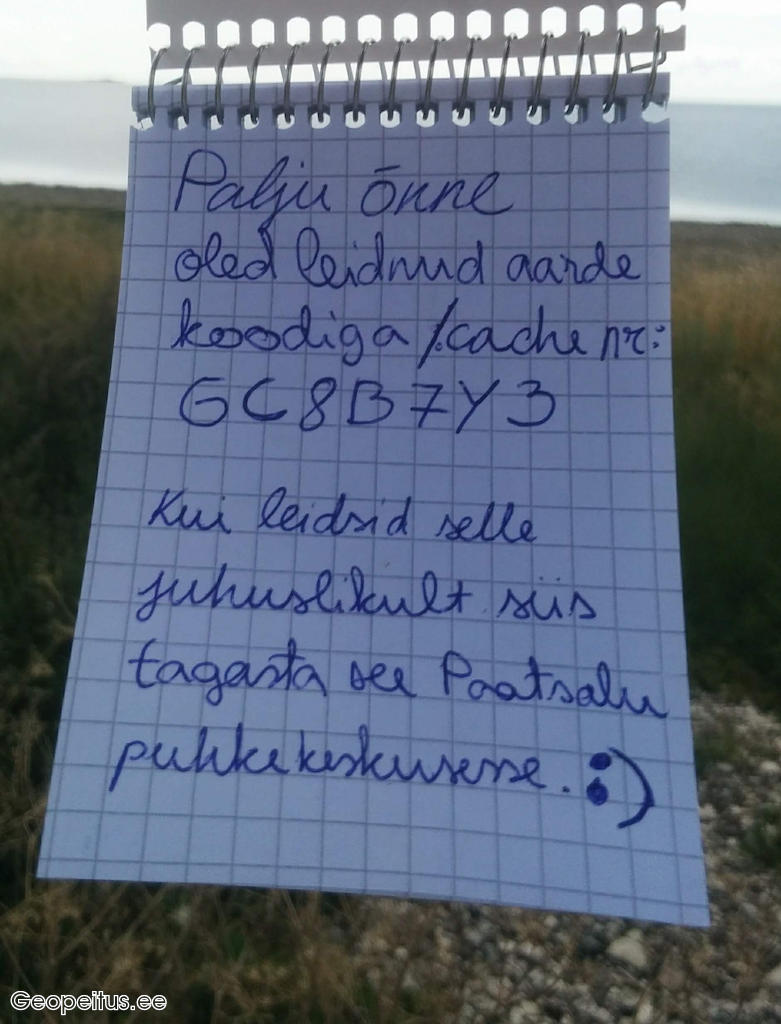 Palju õnne
oled leidnud aarde
koodiga /:cache nr:
GC8B7Y3
Kui leidsid selle
juhuslikult siis
tagasta see Paatsalu
puhkekeskusesse. :)
Geopeitus.ee